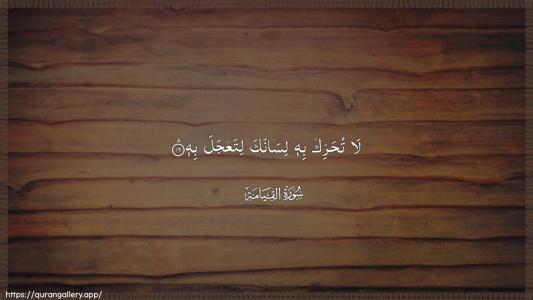 لَا تُحَرِّكْ بِهِۦ لِسَانَكَ لِتَعْجَلَ بِهِۦٓ ۝١٦
سُورَةُ القِيَامَةِ
https://qurangallery.app/